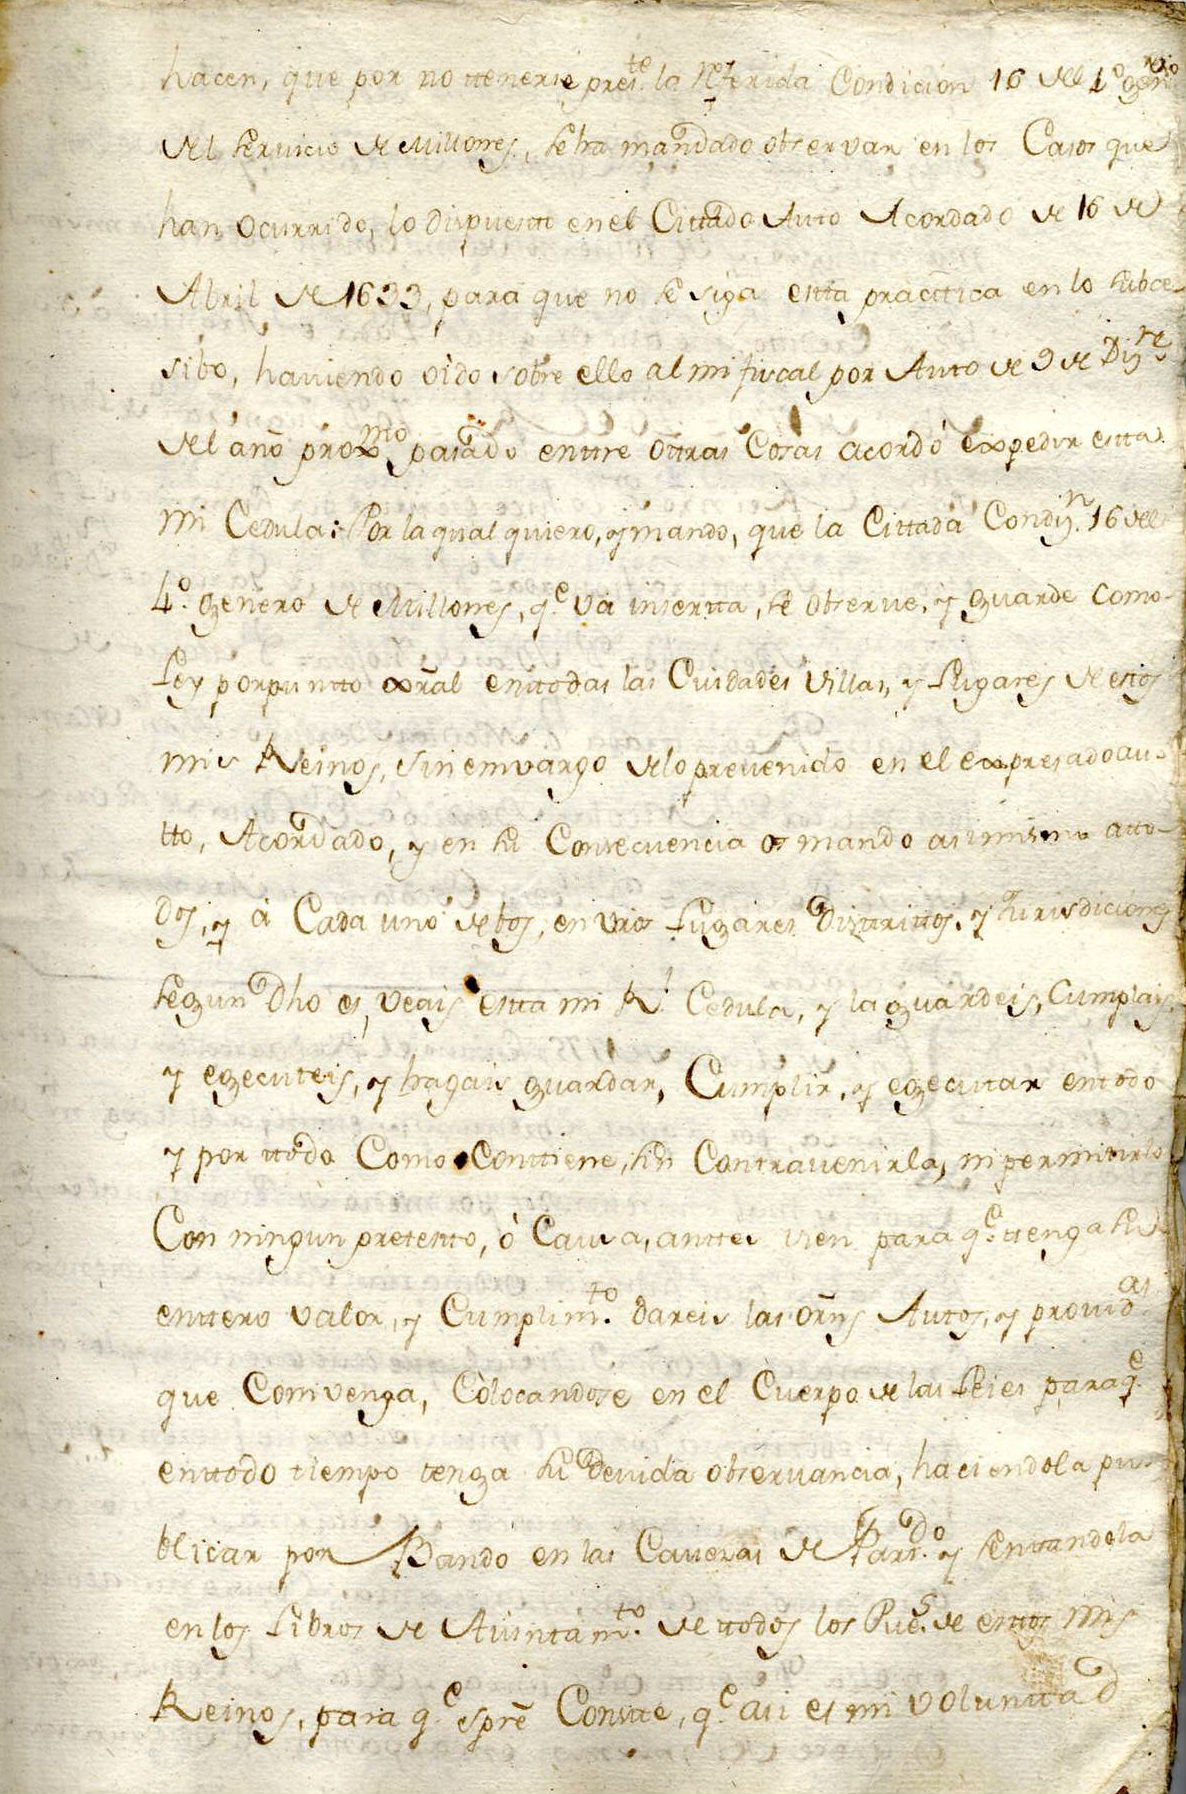 hacen, que por no ttenerse pres.te la Referida Condicion 16 del 4º gen.ro
del servicio de Millones, se ha mandado observar en los Casos que
han ocurrido, lo dispuestto en el Cittado Auto Acordado de 16 de
Abril de 1633, para que no se siga estta practtica en lo subce-
sibo, haviendo oido sobre ello al mi fiscal por Auto de 9 de Diz.re
del año prox.mo pasado enttre ottras Cosas acordó expedir estta
mi Cedula: Por la qual quiero, y mando, que la Cittada Condiz.n 16 del
4º. genero de Millones, q.e va insertta, se observe, y guarde como
Ley por puntto gral en ttodas las Ciudades Villas, y Lugares de estos
mis Reinos, sin emvargo de lo prevenido en el expresado au-
tto, Acordado, y en su Consecuencia os mando asimismo a tto-
dos, y à Cada uno de bos, en vros Lugares Disttrittos, y Jurisdiciones
segun dho es, veais estta mi R.l Cedula, y la guardeis, Cumplais
y egecuteis, y hagais guardar, Cumplir, y egecutar en todo
y por ttodo Como Conttiene, sin Contravenirla, ni permitirlo
Con ningun pretestto, ò Causa, anttes vien para q.e ttenga su
enttero valor, y Cumplim.to dareis las orns Autos, y provid.as
que Comvenga, Còlocandose en el Cuerpo de las Leies para q.e
en ttodo tiempo tenga su devida observancia, haciendola pu-
blicar por Bando en las Caveras de Part.do y senttandola
en los Libros de Aiuntam.to de ttodos los Pue.s de esttos mis
Reinos, para q.e spre Constte, q.e asi es mi volunttad